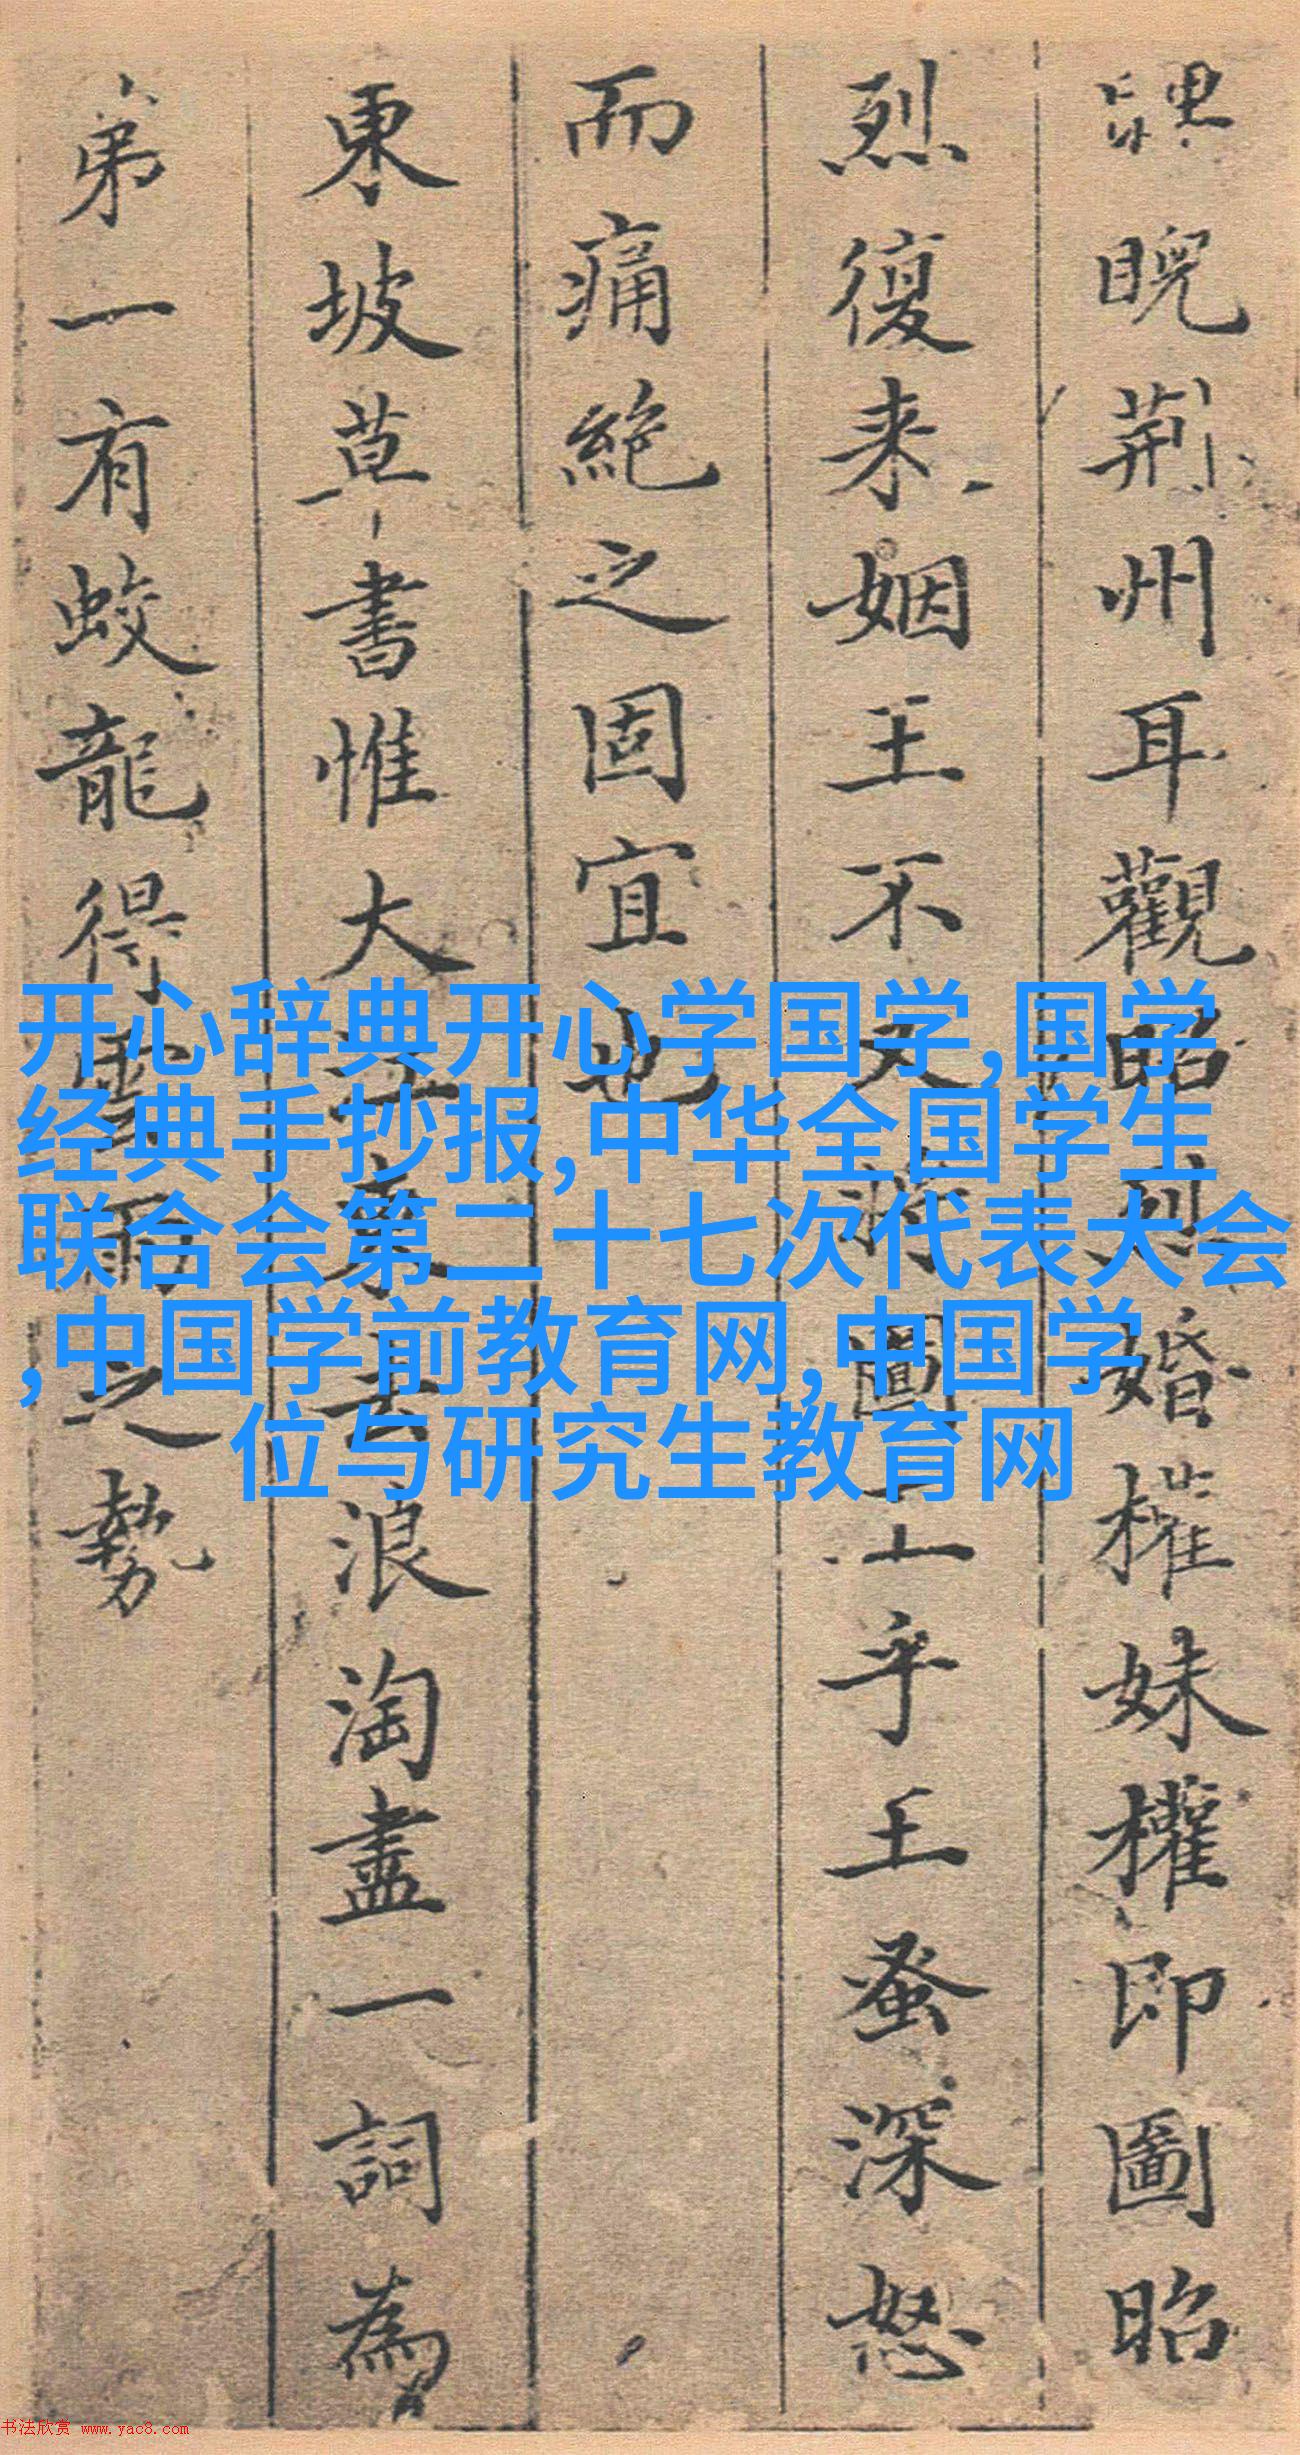 睨荆州耳觀昭烈婚權妹權即圖昭
烈復来姻王不
乎王蚤深怒
而痛絶之固宜也
東坡草書惟大江東去浪淘盡一詞為
弟一有蛟龍得雲雨之勢
开心辞典开心学国学,国学
经典手抄报,中华全国学生
联合会第二十七次代表大会
,中国学前教育网,中国学
位与研究生教育网
书法欣赏 www.yac8.com